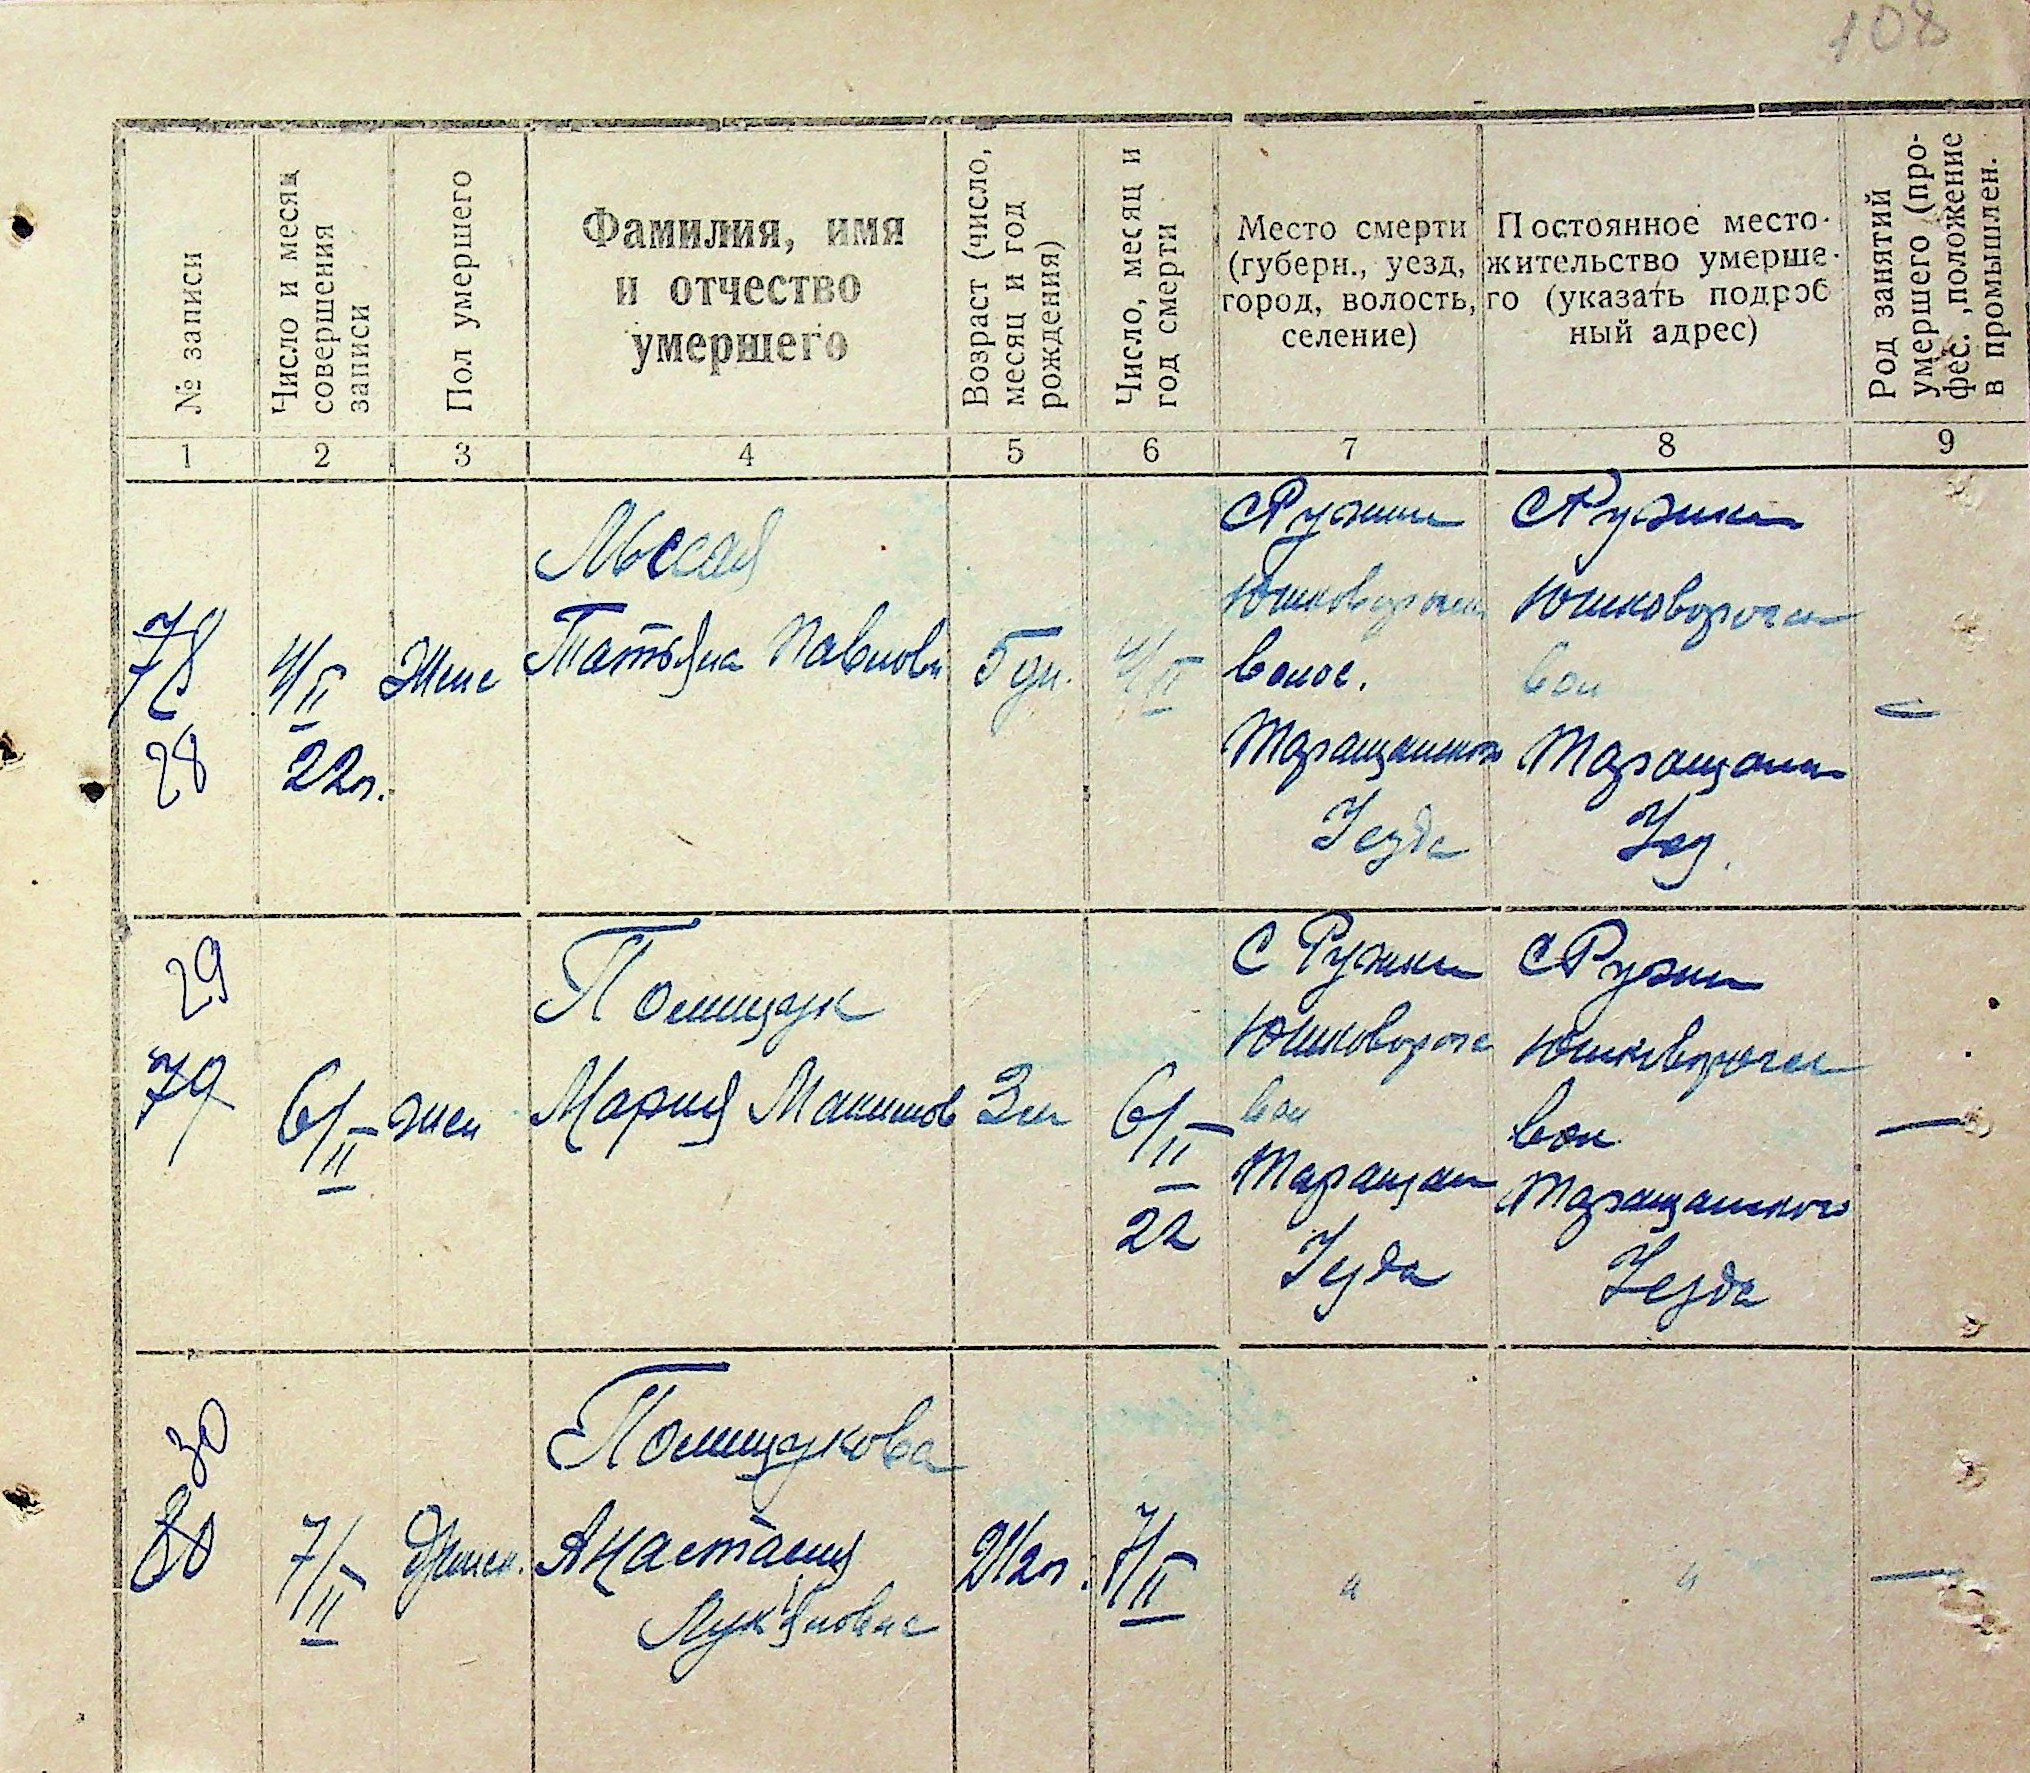 108
№ записи
Число и месяц
совершения
записи
Пол умершего
Фамилия, имя
и отчество
умершего
Возраст (число,
месяц и год
рождения)
Число, месяц и
год смерти
Место смерти
(губерн., уезд,
город, волость,
селение)
Постоянное место-
жительство умерше-
го (указать подроб
ный адрес)
Род занятий
умершего (про-
фес., положение
в промышлен.
1
2
3
4
5
6
7
8
9
78
28
4/II
22г.
Женс
Лысая
Татьяна Павловн
5 дн.
4/II
С Ружки
Юшковорогск
волос.
Таращанского
Уезда
С Ружки
Юшковрогск
вол
Таращанск
Уез.
29
79
6/II
жен
Полищук
Мария Максимов
6/II
22
С Ружки
Юшковорогс
вол
Таращан
Уезда
С Ружки
Юшковрогск
вол.
Таращанского
Уезда
—
30
80
7/II
Женск.
Полищукова
Анастасия
Лук'яновна
2 1/2 г.
7/II
"
"
—